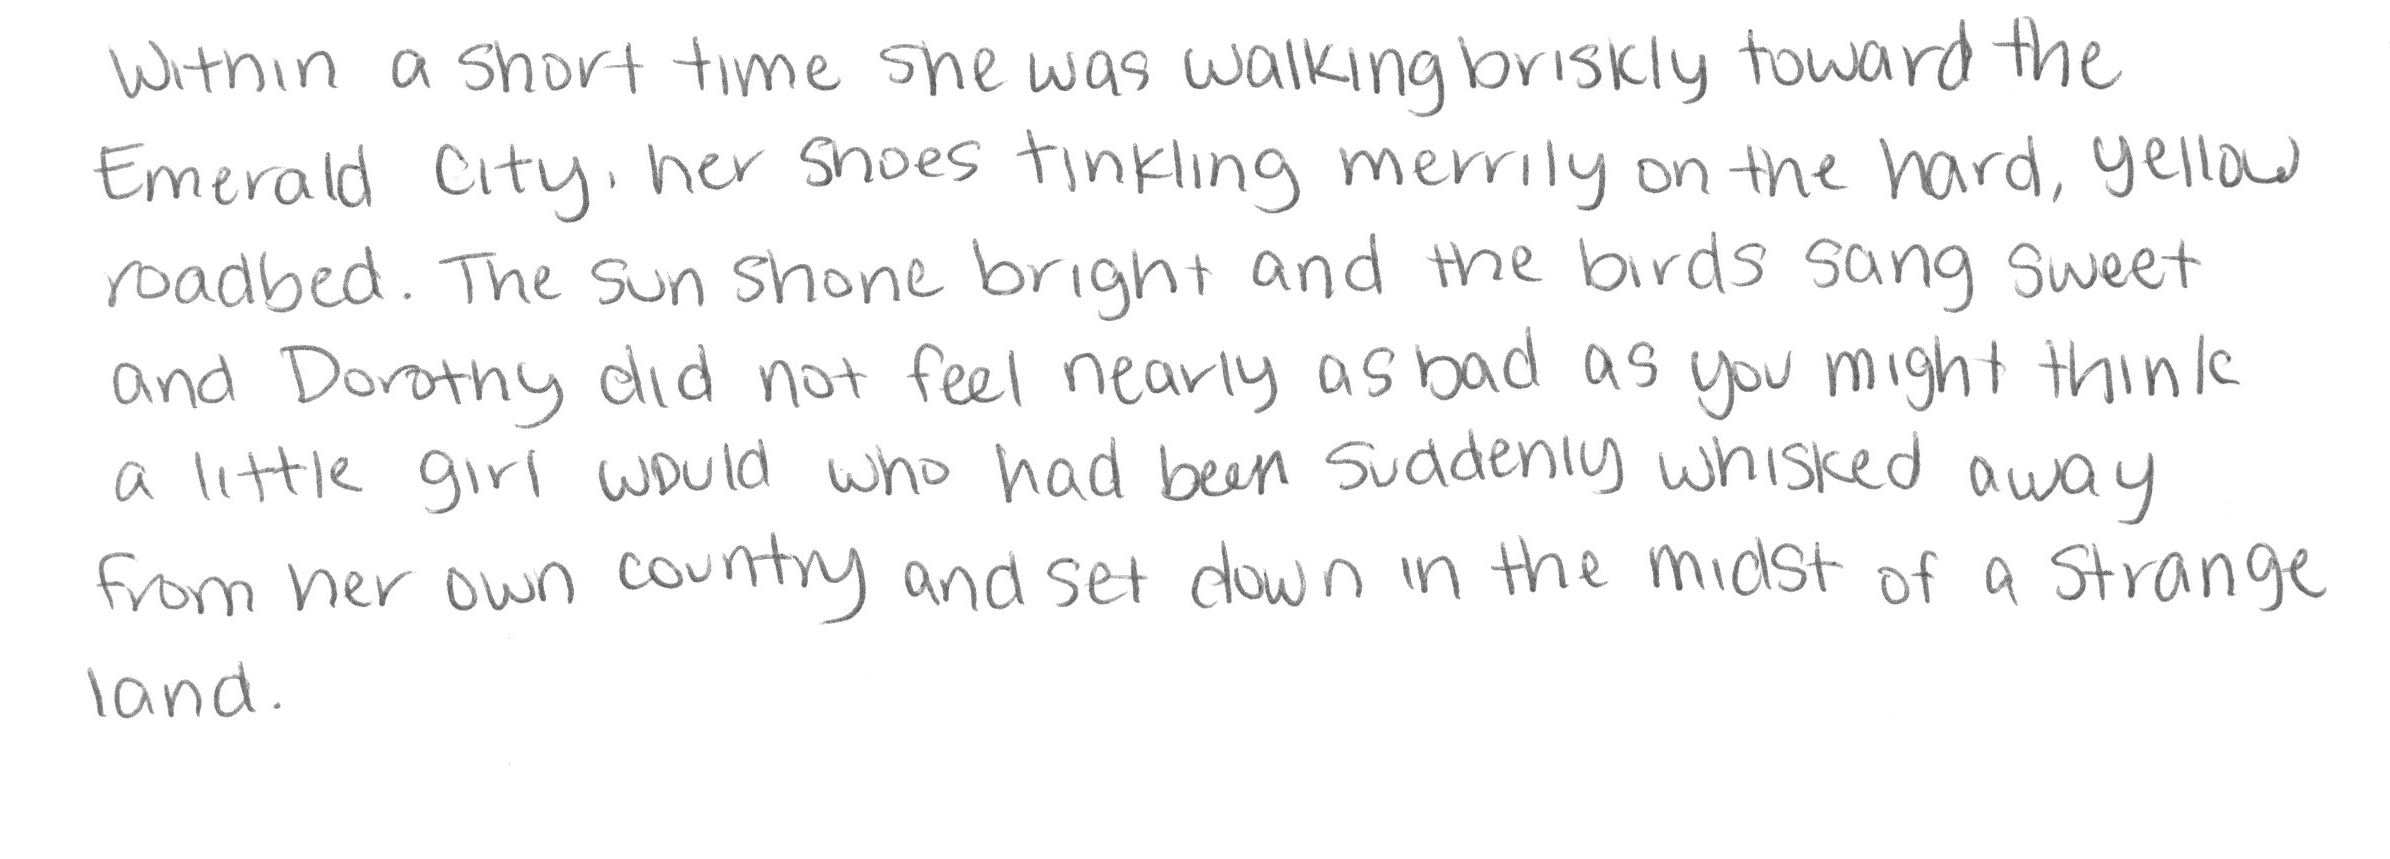 Within a short time she was walking briskly toward the
Emerald City, her shoes tinkling merrily on the hard, yellow
roadbed. The sun shone bright and the birds sang sweet
and Dorothy did not feel nearly as bad as you might think
a little girl would who had been suddenly whisked away
from her own country and set down in the midst of a strange
land.